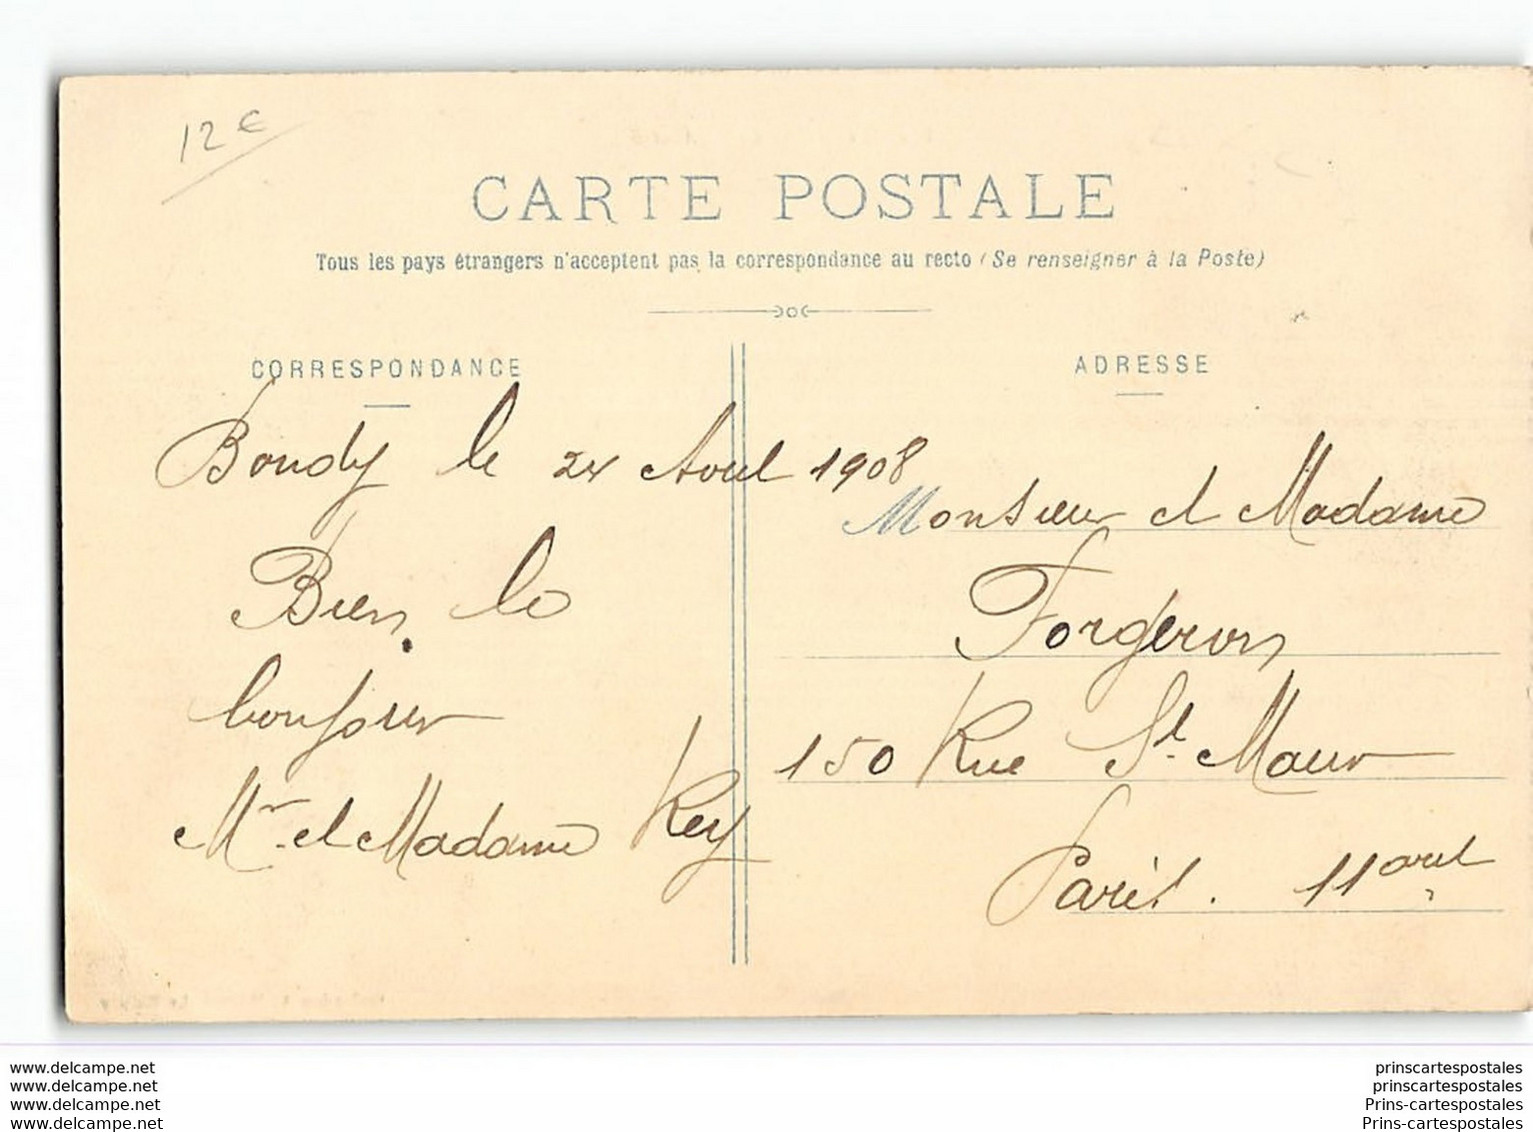 12 €
CARTE POSTALE
Tous les pays étrangers n'acceptent pas la correspondance au recto (Se renseigner à la Poste)
CORRESPONDANCE
Bondy le 24 Avril 1908
Bien le
bonjour
Mr et Madame Rey
ADRESSE
Monsieur et Madame
Forgeron
150 Rue St. Maur
Paris. 11
www.delcampe.net
www.delcampe.net
www.delcampe.net
www.delcampe.net
prinscartespostales
prinscartespostales
Prins-cartespostales
Prins-cartespostales